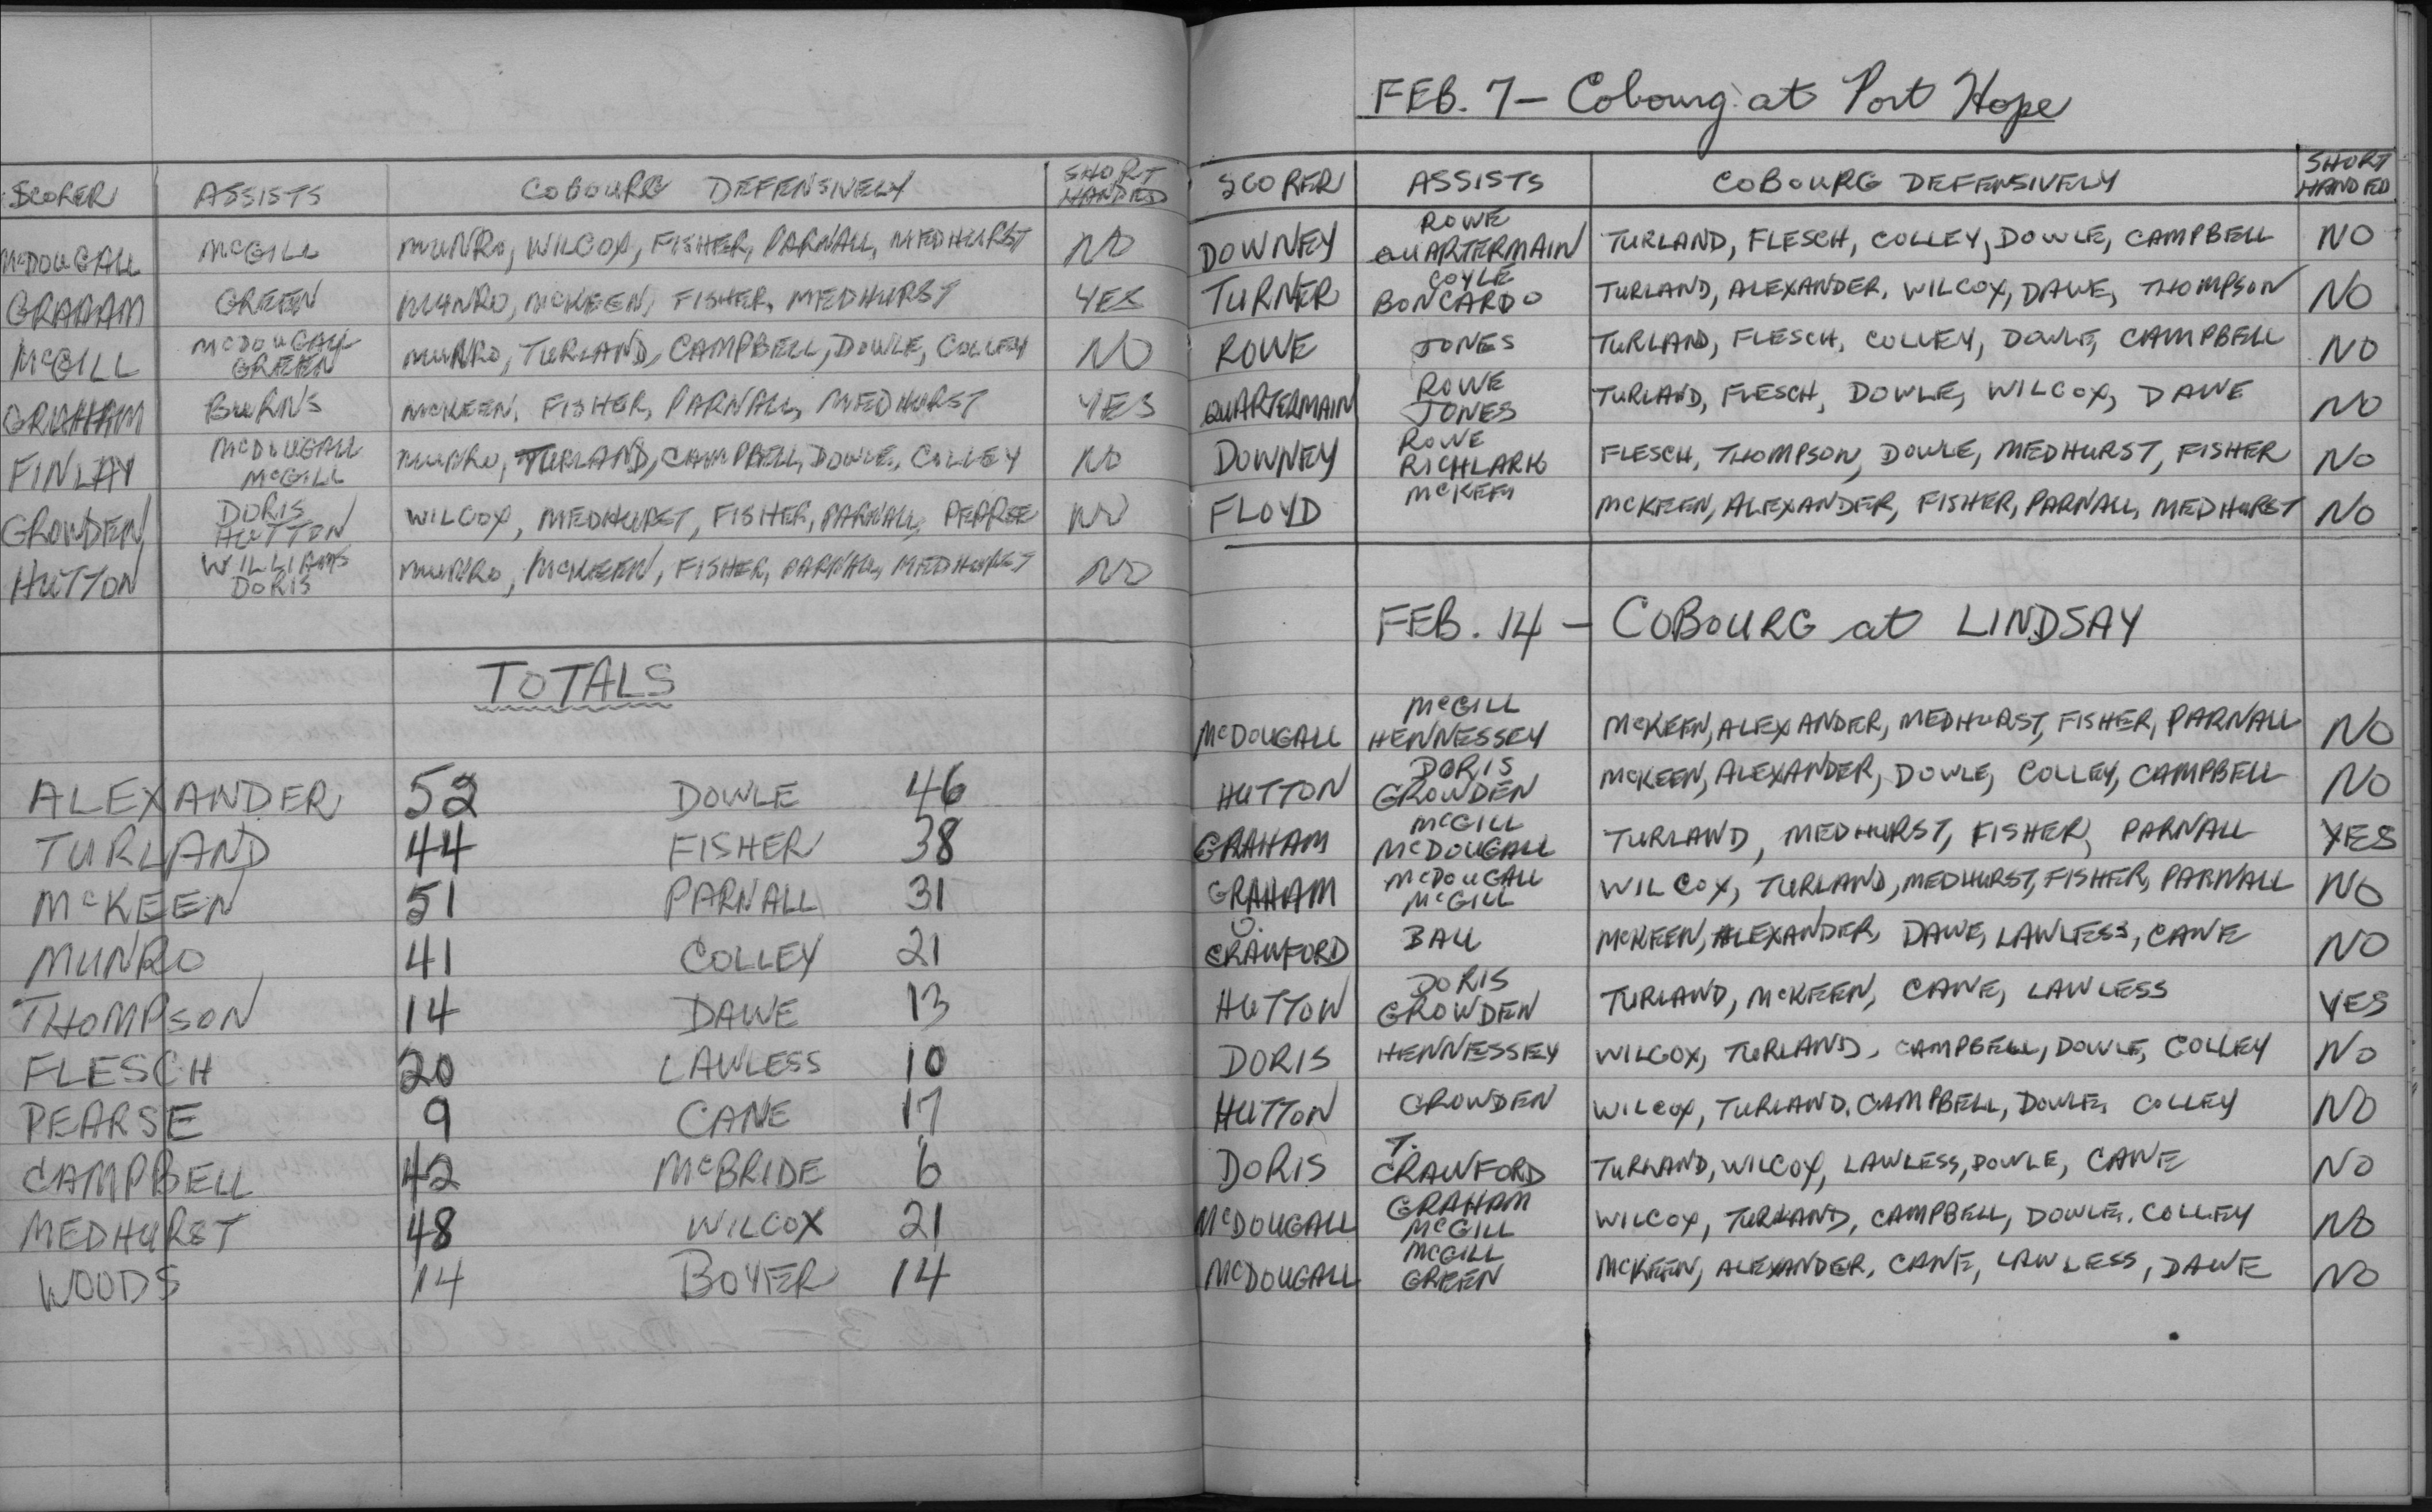 SCORER ASSISTS COBOURG DEFENSIVELY SHORT HANDED
McDOUGALL McGILL MUNRO, WILCOX, FISHER, PARNALL, MEDHURST NO
GRAHAM GREEN MUNRO, McKEEN, FISHER, MEDHURST YES
McGILL McDOUGALL GREEN MUNRO, TURLAND, CAMPBELL, DOWLE, COLLEY NO
GRAHAM BURNS McKEEN, FISHER, PARNALL, MEDHURST YES
FINLAY McDOUGALL McGILL MUNRO, TURLAND, CAMPBELL, DOWLE, COLLEY NO
GROWDEN DORIS HUTTON WILCOX, MEDHURST, FISHER, PARNALL, PEARSE NO
HUTTON WILLIAMS DORIS MUNRO, McKEEN, FISHER, PARNALL, MEDHURST NO
TOTALS
ALEXANDER 52 DOWLE 46
TURLAND 44 FISHER 38
McKEEN 51 PARNALL 31
MUNRO 41 COLLEY 21
THOMPSON 14 DAWE 13
FLESCH 20 LAWLESS 10
PEARSE 9 CANE 17
CAMPBELL 42 McBRIDE 6
MEDHURST 48 WILCOX 21
WOODS 14 BOYER 14
FEB. 7 - Cobourg at Port Hope
SCORER ASSISTS COBOURG DEFENSIVELY SHORT HANDED
DOWNEY ROWE QUARTERMAIN TURLAND, FLESCH, COLLEY, DOWLE, CAMPBELL NO
TURNER COYLE BONCARDO TURLAND, ALEXANDER, WILCOX, DAWE, THOMPSON NO
ROWE JONES TURLAND, FLESCH, COLLEY, DOWLE, CAMPBELL NO
QUARTERMAIN ROWE JONES TURLAND, FLESCH, DOWLE, WILCOX, DAWE NO
DOWNEY ROWE RICHLARK FLESCH, THOMPSON, DOWLE, MEDHURST, FISHER NO
FLOYD McKEEN, ALEXANDER, FISHER, PARNALL, MEDHURST NO
FEB. 14 - COBOURG at LINDSAY
McDOUGALL McGILL HENNESSEY McKEEN, ALEXANDER, MEDHURST, FISHER, PARNALL NO
HUTTON DORIS GROWDEN McKEEN, ALEXANDER, DOWLE, COLLEY, CAMPBELL NO
GRAHAM McGILL McDOUGALL TURLAND, MEDHURST, FISHER, PARNALL YES
GRAHAM McDOUGALL McGILL WILCOX, TURLAND, MEDHURST, FISHER, PARNALL NO
CRAWFORD BALL McKEEN, ALEXANDER, DAWE, LAWLESS, CANE NO
HUTTON DORIS GROWDEN TURLAND, McKEEN, CANE, LAWLESS YES
DORIS HENNESSEY WILCOX, TURLAND, CAMPBELL, DOWLE, COLLEY NO
HUTTON GROWDEN WILCOX, TURLAND, CAMPBELL, DOWLE, COLLEY NO
DORIS T. CRAWFORD TURLAND, WILCOX, LAWLESS, DOWLE, CANE NO
McDOUGALL GRAHAM McGILL WILCOX, TURLAND, CAMPBELL, DOWLE, COLLEY NO
McDOUGALL McGILL GREEN McKEEN, ALEXANDER, CANE, LAWLESS, DAWE NO